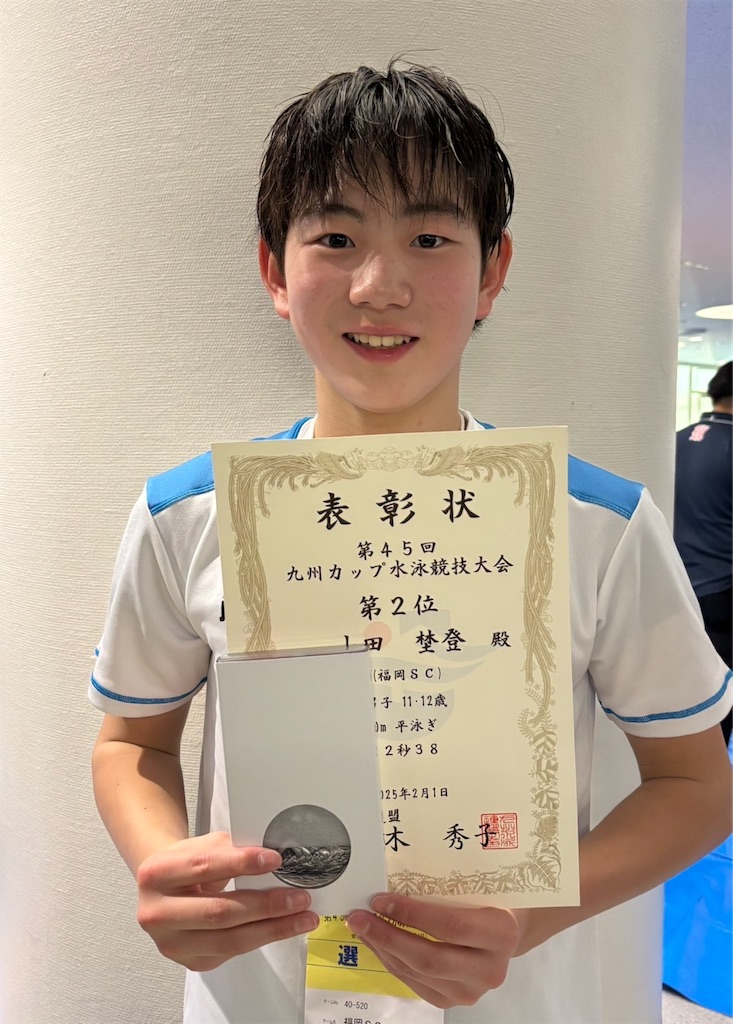 表彰状
第45回
九州カップ水泳競技大会
第2位
田 埜登 殿
(福岡SC)
子 11・12歳
0m 平泳ぎ
2秒38
025年2月1日
盟
木 秀子
選
40-520
福岡SC